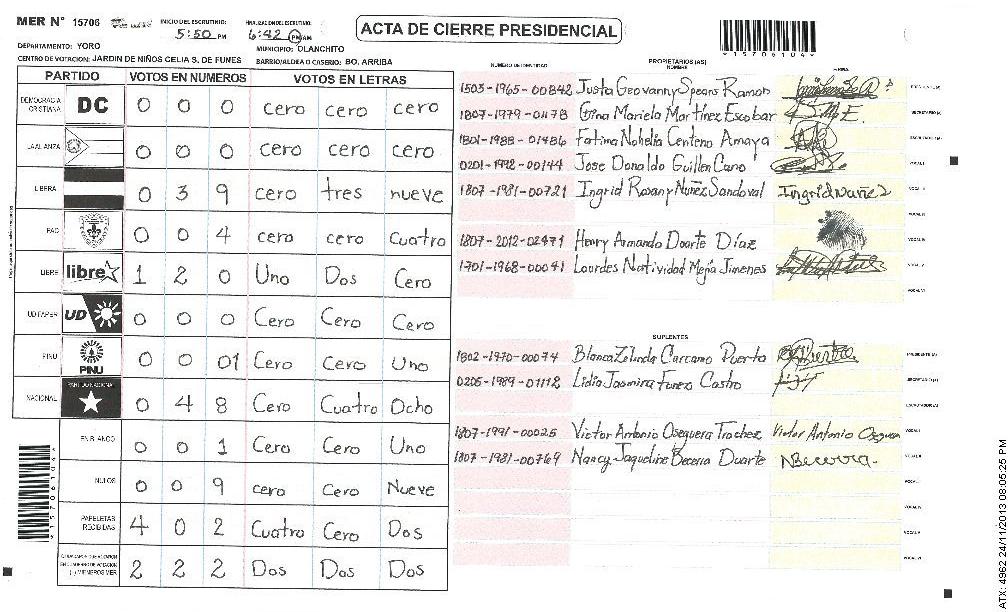 MER N° 15706
INICIO DEL ESCRUTINIO:
5:50 PM
FINALIZACION DEL ESCRUTINIO:
6:42 PM AM
ACTA DE CIERRE PRESIDENCIAL
*15706104*
DEPARTAMENTO: YORO
MUNICIPIO: OLANCHITO
CENTRO DE VOTACION: JARDIN DE NIÑOS CELIA S. DE FUNES
BARRIO/ALDEA O CASERIO: BO. ARRIBA
PARTIDO VOTOS EN NUMEROS VOTOS EN LETRAS
DEMOCRACIA CRISTIANA DC 0 0 0 cero cero cero
LA ALIANZA 0 0 0 cero cero cero
LIBERAL 0 3 9 cero tres nueve
PAC 0 0 4 cero cero Cuatro
LIBRE libre 1 2 0 Uno Dos Cero
UD FAPER UD 0 0 0 Cero Cero Cero
PINU PINU 0 0 01 Cero Cero Uno
NACIONAL PARTIDO NACIONAL 0 4 8 Cero Cuatro Ocho
EN BLANCO 0 0 1 Cero Cero Uno
NULOS 0 0 9 cero Cero Nueve
PAPELETAS RECIBIDAS 4 0 2 Cuatro Cero Dos
2 2 2 Dos Dos Dos
*15706104*
NUMERO DE IDENTIDAD PROPIETARIOS (AS) NOMBRE FIRMA
1503-1965-00842 Justa Geovanny Spears Ramon PRESIDENTE (A)
1807-1979-01178 Gina Mariela Martinez Escobar SECRETARIO (A)
1801-1988-01486 Fatima Nohelia Centeno Amaya ESCRUTADOR (A)
0201-1992-00144 Jose Donaldo Guillen Cano VOCAL I
1807-1981-00721 Ingrid Roxany Nuñez Sandoval Ingrid Nuñez VOCAL II
VOCAL III
1807-2012-02471 Henry Armando Doarte Díaz VOCAL IV
1701-1968-00041 Lourdes Natividad Mejía Jimenes VOCAL V
VOCAL VI
SUPLENTES
1802-1970-00074 Blanca Zelinda Carcamo Puerto PRESIDENTE (A)
0205-1989-01112 Lidia Jasmira Funez Castro SECRETARIO (A)
ESCRUTADOR (A)
1807-1991-00025 Victor Antonio Oseguera Trochez Victor Antonio Oseguera VOCAL I
1807-1981-00769 Nancy Jaqueline Becerra Duarte NBecerra. VOCAL II
VOCAL III
VOCAL IV
VOCAL V
VOCAL VI
ATX: 4962 24/11/2013 08:05:25 PM